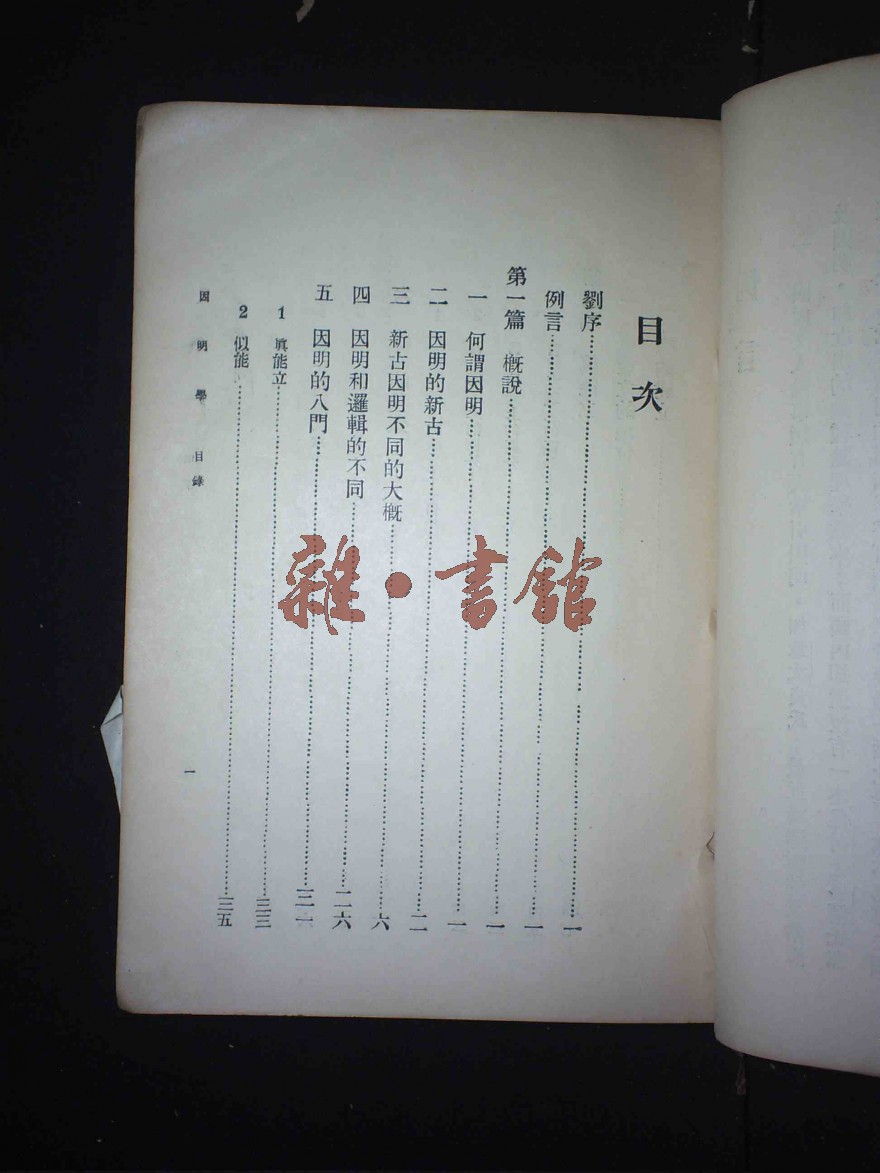 目次
劉序……一
例言……一
第一篇 概說……一
一 何謂因明……一
二 因明的新古……二
三 新古因明不同的大概……六
四 因明和邏輯的不同……二六
五 因明的八門……三一
1 眞能立……三三
2 似能……三五
因明學 目錄
一
雜·書館